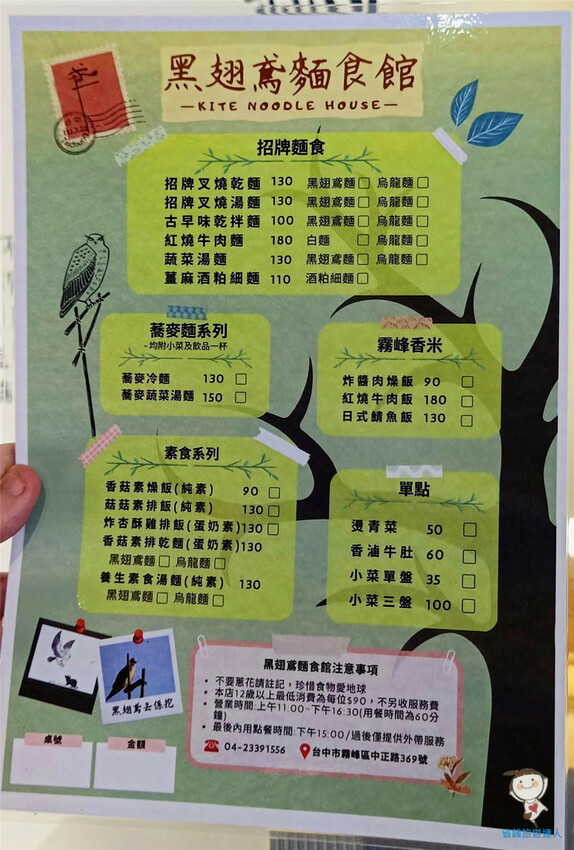 黑翅鳶麵食館
—KITE NOODLE HOUSE—
招牌麵食
招牌叉燒乾麵 130 黑翅鳶麵□ 烏龍麵□
招牌叉燒湯麵 130 黑翅鳶麵□ 烏龍麵□
古早味乾拌麵 100 黑翅鳶麵□ 烏龍麵□
紅燒牛肉麵 180 白麵 □ 烏龍麵□
蔬菜湯麵 130 黑翅鳶麵□ 烏龍麵□
薑麻酒粕細麵 110 酒粕細麵□
蕎麥麵系列
~均附小菜及飲品一杯
蕎麥冷麵 130 □
蕎麥蔬菜湯麵 150 □
霧峰香米
炸醬肉燥飯 90 □
紅燒牛肉飯 180 □
日式鯖魚飯 130 □
素食系列
香菇素燥飯(純素) 90 □
菇菇素排飯(純素) 130 □
炸杏酥雞排飯(蛋奶素)130 □
香菇素排乾麵(蛋奶素)130
黑翅鳶麵□ 烏龍麵□
養生素食湯麵(純素) 130
黑翅鳶麵□ 烏龍麵□
單點
燙青菜 50 □
香滷牛肚 60 □
小菜單盤 35 □
小菜三盤 100 □
黑翅鳶麵食館注意事項
• 不要蔥花請註記，珍惜食物愛地球
• 本店12歲以上最低消費為每位$90，不另收服務費
• 營業時間:上午11:00-下午16:30(用餐時間為60分
鐘)
• 最後內用點餐時間:下午15:00/過後僅提供外帶服務
04-23391556 台中市霧峰區中正路369號
黑翅鳶去係抱
桌號 金額
省錢旅遊達人